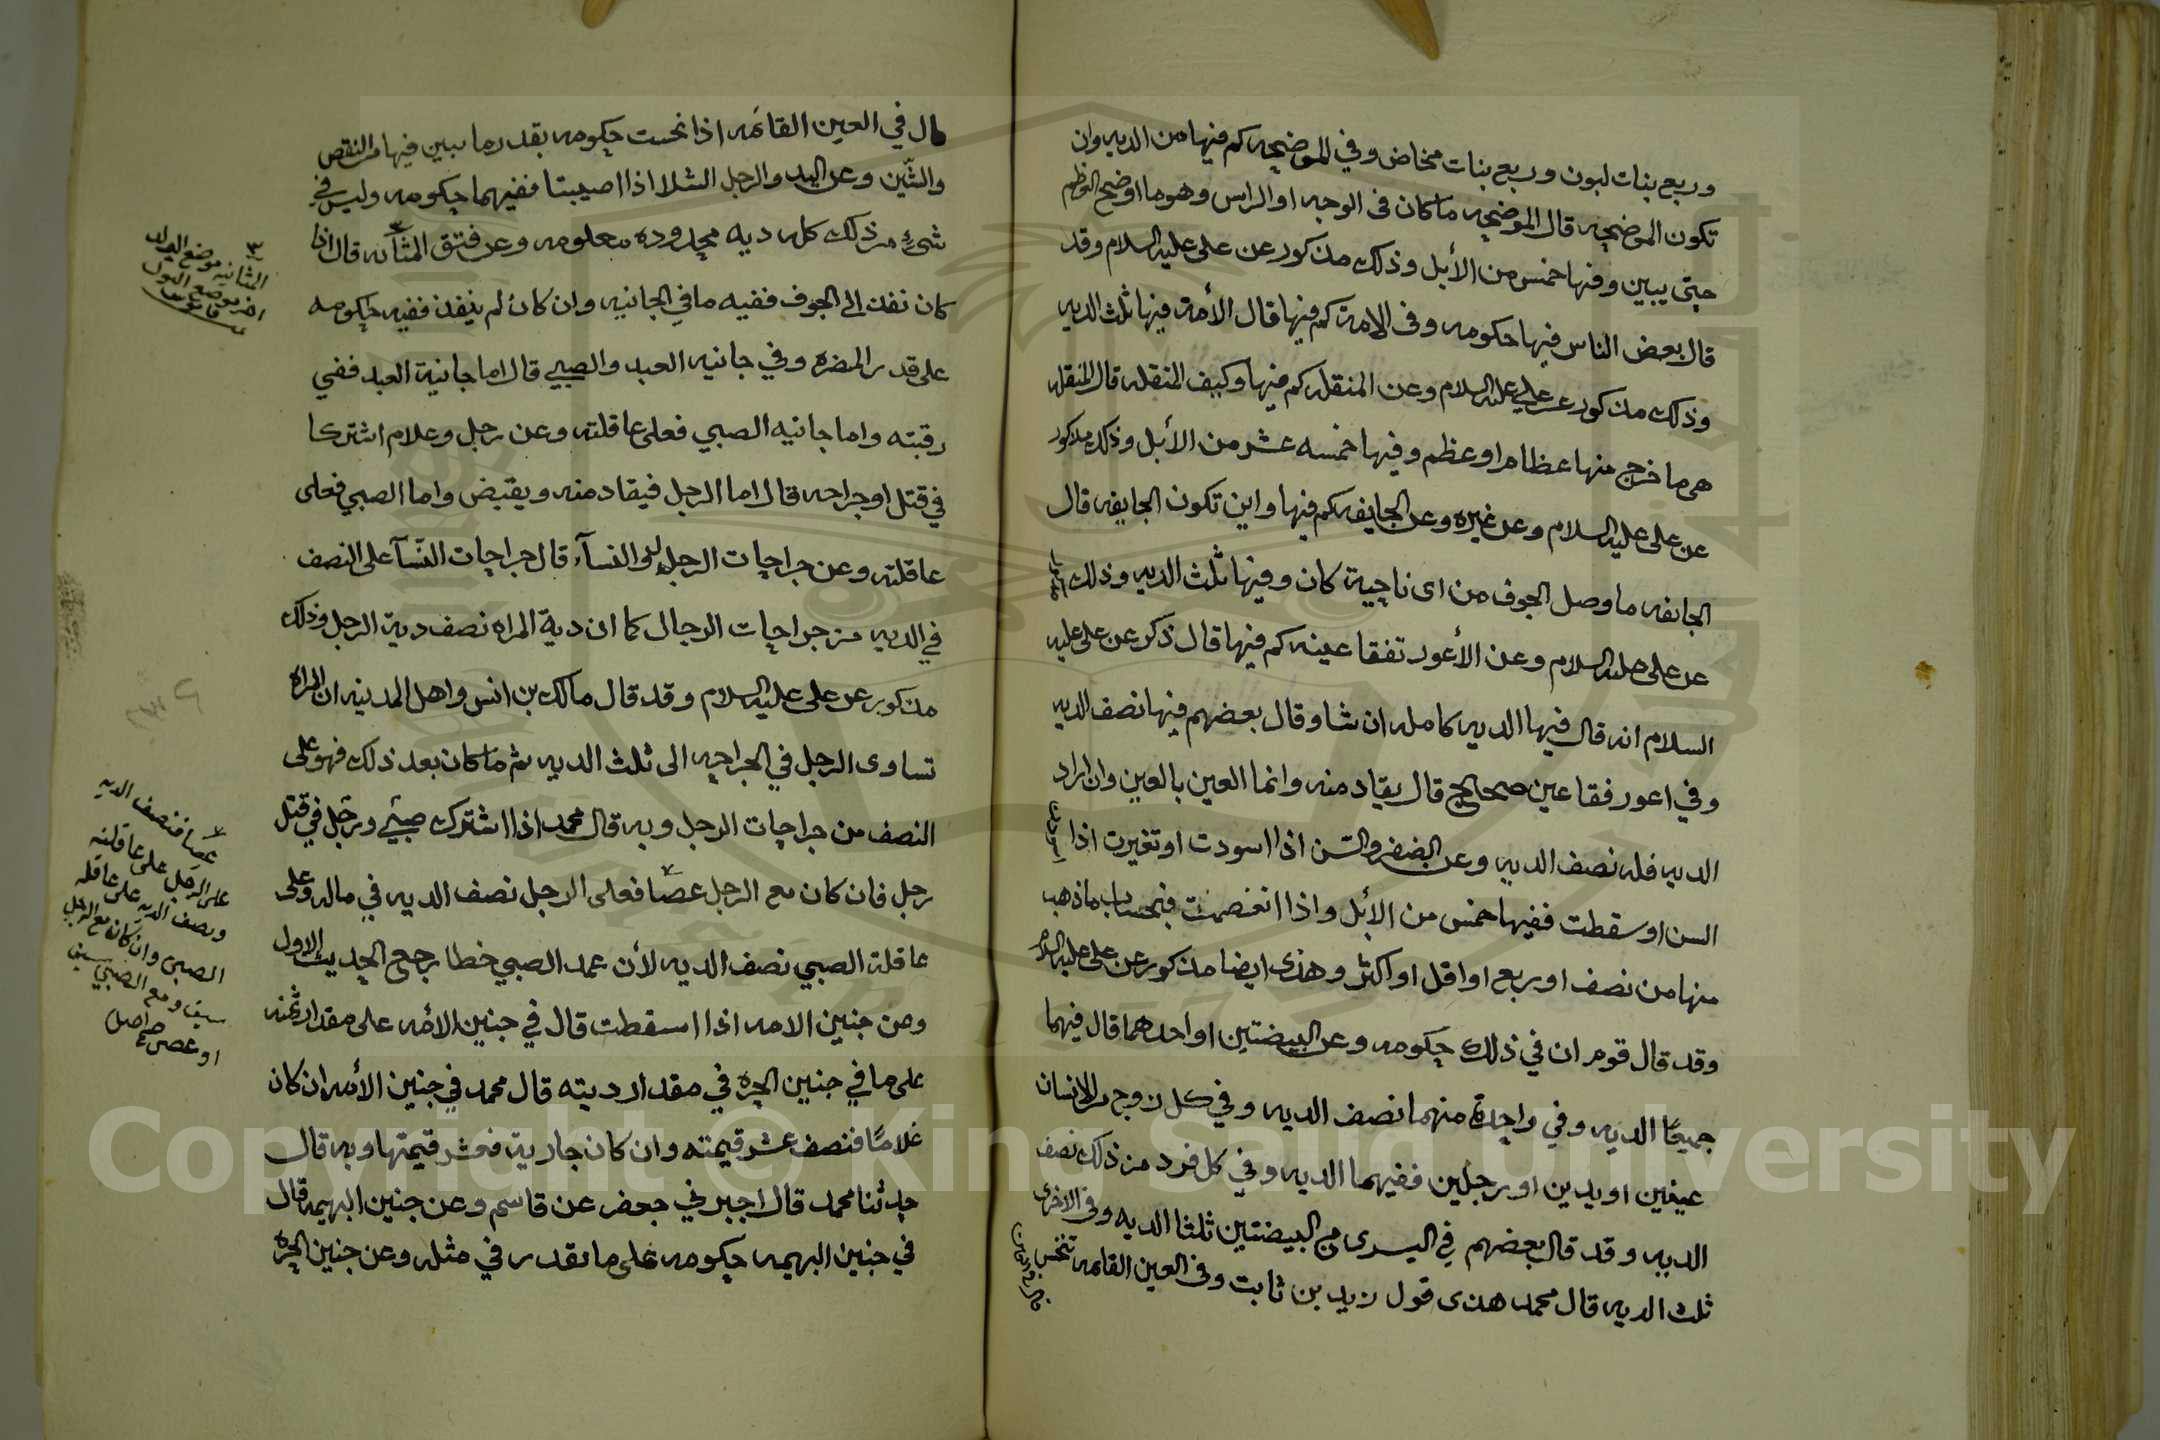 وربع بنات لبون وربع بنات مخاض وفي الموضحه كم فيها من الديه وان
تكون الموضحه قال الموضحه ما كان في الوجه او الراس وهو ما اوضح العظم
حتى يبين وفيها خمس من الأبل وذلك مذكور عن علي عليه السلام وقد
قال بعض الناس فيها حكومه وفي الامة كم فيها قال الأمة فيها ثلث الديه
وذلك مذكور عن علي عليه السلام وعن المنقله كم فيها وكيف المنقله قال المنقله
هي ما خرج منها عظام او عظم وفيها خمسه عشر من الأبل وذلك مذكور
عن علي عليه السلام وعن غيره وعن الجايفه كم فيها واين تكون الجايفه قال
الجايفه ما وصل الجوف من اي ناحية كان وفيها ثلث الديه وذلك
عن علي عليه السلام وعن الأعور تفقا عينه كم فيها قال ذكر عن علي عليه
السلام انه قال فيها الديه كامله ان شا وقال بعضهم فيها نصف الديه
وفي اعور فقا عين صحيح قال يقاد منه وانما العين بالعين وان اراد
الديه فله نصف الديه وعن الضفر والسن اذا اسودت او تغيرت اذا
السن او سقطت ففيها خمس من الأبل واذا انغضمت فبحساب ما ذهب
منها من نصف او ربع او اقل او اكثر وهذى ايضا مذكور عن علي عليه السلام
وقد قال قوم ان في ذلك حكومه وعن البيضتين او احدهما قال فيهما
جميعًا الديه وفي واحدة منهما نصف الديه وفي كل زوج من الانسان
عينين او يدين او رجلين ففيهما الديه وفي كل فرد من ذلك نصف
الديه وقد قال بعضهم في اليسرى من البيضتين ثلثا الديه وفي الاخرى
ثلث الديه قال محمد هذى قول زيد بن ثابت وفي العين القايمه تنخس
قال في العين القائمه اذا نخست حكومه بقدر ما يبين فيها من النقص
والشين وعن اليد والرجل الشلا اذا اصيبتا ففيهما حكومه وليس في
شيء من ذلك كله ديه محدوده معلومه وعن فتق المثانه قال اذا
كان نفذ الى الجوف ففيه ما في الجانيه وان كان لم ينفذ ففيه حكومه
على قدر المضره وفي جانيه العبد والصبي قال اما جانية العبد ففي
رقبته واما جانيه الصبي فعلى عاقلته وعن رجل وغلام اشتركا
في قتل او جراحه قال اما الرجل فيقاد منه ويقبض واما الصبي فعلى
عاقلته وعن جراحات الرجل والنسآء قال جراحات النسآ على النصف
في الديه من جراحات الرجال كما ان دية المراه نصف دية الرجل وذلك
مذكور عن علي عليه السلام وقد قال مالك بن انس واهل المدينه ان المراه
تساوى الرجل في الجراحه الى ثلث الديه ثم ما كان بعد ذلك فهو على
النصف من جراحات الرجل وبه قال محمد اذا اشترك صبي ورجل في قتل
رجل فان كان مع الرجل عصا فعلى الرجل نصف الديه في ماله وعلى
عاقلة الصبي نصف الديه لأن عمد الصبي خطا رجع الحديث الاول
وعن جنين الامه اذا اسقطت قال في جنين الأمه على مقدار ثمنه
على ما في جنين الحره في مقدار ديته قال محمد في جنين الأمه ان كان
غلامًا فنصف عشر قيمته وان كان جارية فعشر قيمتها وبه قال
حدثنا محمد قال اخبرني جعفر عن قاسم وعن جنين البهيمه قال
في جنين البهيمه حكومه على ما يقدر في مثله وعن جنين الحره
المثانه موضع الولد
او موضع البول
قاموس
عصا فنصف الديه
على الرجل على عاقلته
ونصف الديه على عاقله
الصبي وان كان مع الرجل
سيف ومع الصبي سيف
او عصى صح اصل